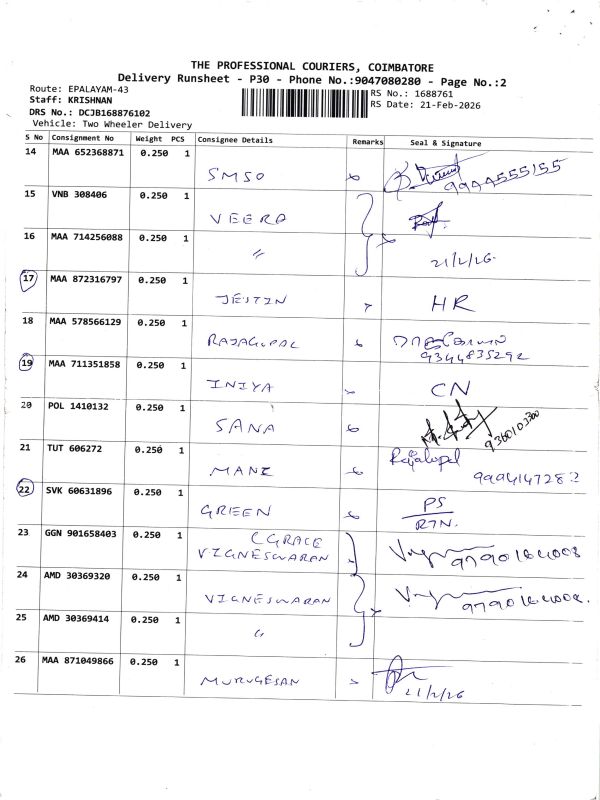 THE PROFESSIONAL COURIERS, COIMBATORE
Delivery Runsheet - P30 - Phone No.:9047080280 - Page No.:2
Route: EPALAYAM-43
Staff: KRISHNAN
DRS No.: DCJB168876102
Vehicle: Two Wheeler Delivery
RS No.: 1688761
RS Date: 21-Feb-2026
S No Consignment No Weight PCS Consignee Details Remarks Seal & Signature
14 MAA 652368871 0.250 1
SMSO
9944555155
15 VNB 308406 0.250 1
VEERA
16 MAA 714256088 0.250 1
〃 21/2/26
17 MAA 872316797 0.250 1
JESTIN HR
18 MAA 578566129 0.250 1
RAJAGOPAL
9344835292
19 MAA 711351858 0.250 1
INIYA CN
20 POL 1410132 0.250 1
SANA
21 TUT 606272 0.250 1
MANI
22 SVK 60631896 0.250 1
GREEN PS
RTN.
23 GGN 901658403 0.250 1
(GRACE
VIGNESWARAN
24 AMD 30369320 0.250 1
VIGNESWARAN
25 AMD 30369414 0.250 1
〃
26 MAA 871049866 0.250 1
MURUGESAN
21/2/26